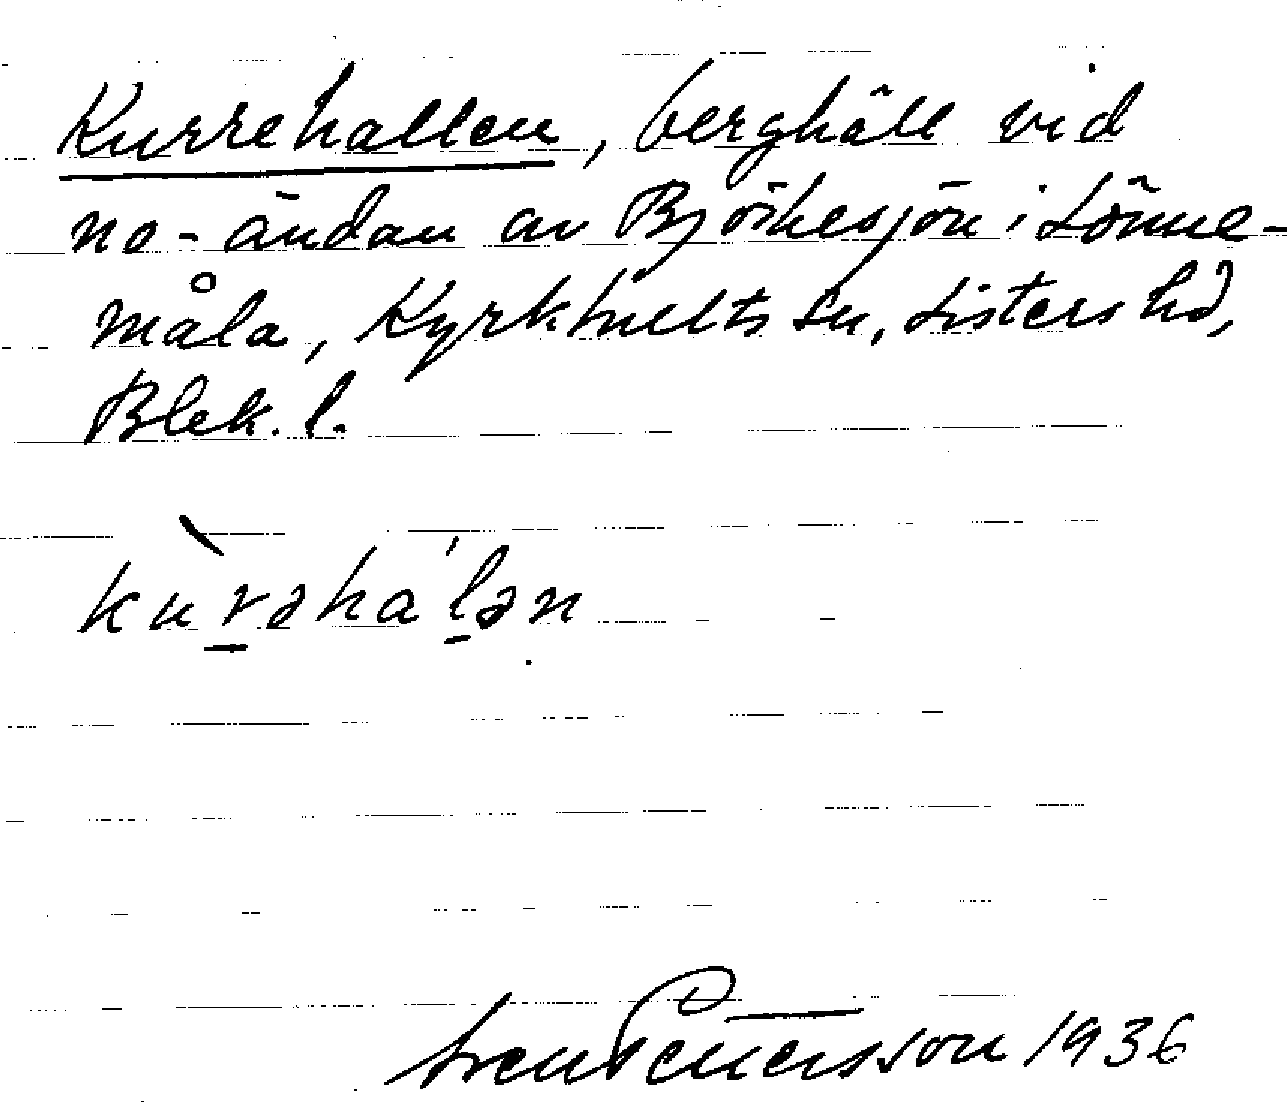 Kurrehallen, berghäll vid
no-ändan av Björkesjön i Lönne-
måla, Kyrkhults sn, Listers hd,
Blek. l.
kùrəha'lən
Sven Pettersson 1936